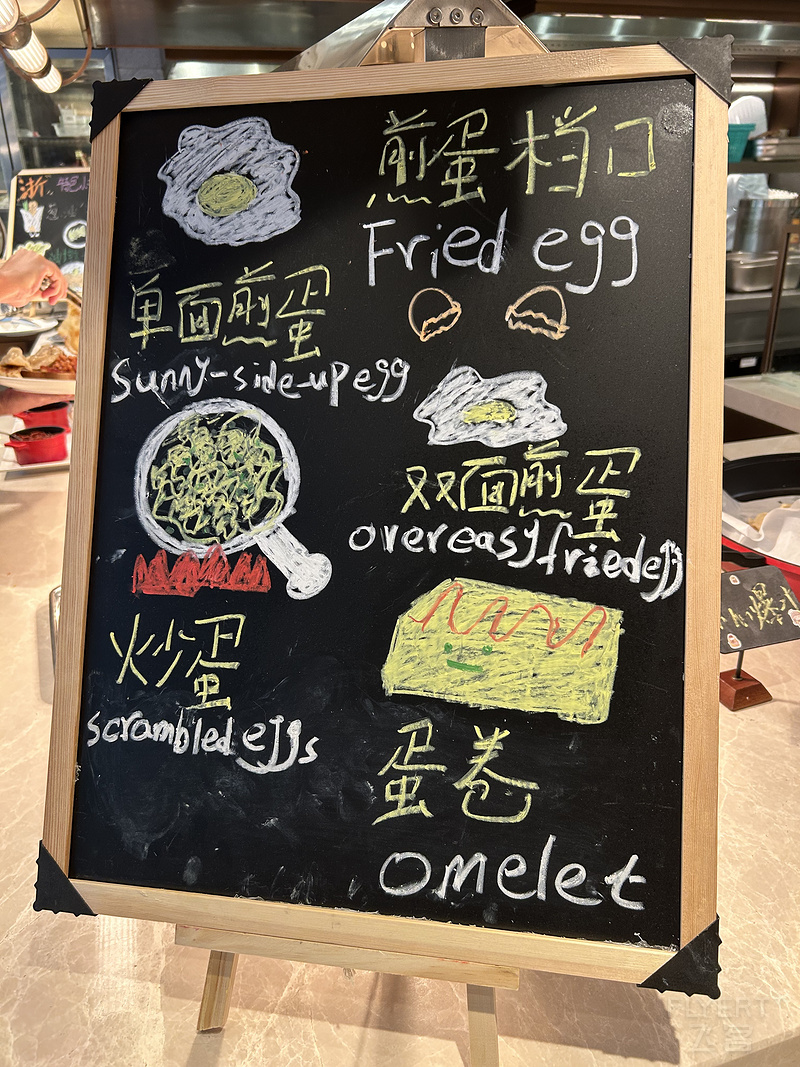 煎蛋档口
Fried egg
单面煎蛋
Sunny-side-up egg
双面煎蛋
overeasy fried egg
炒蛋
scrambled eggs
蛋卷
omelet
浙
FLYERT
飞客